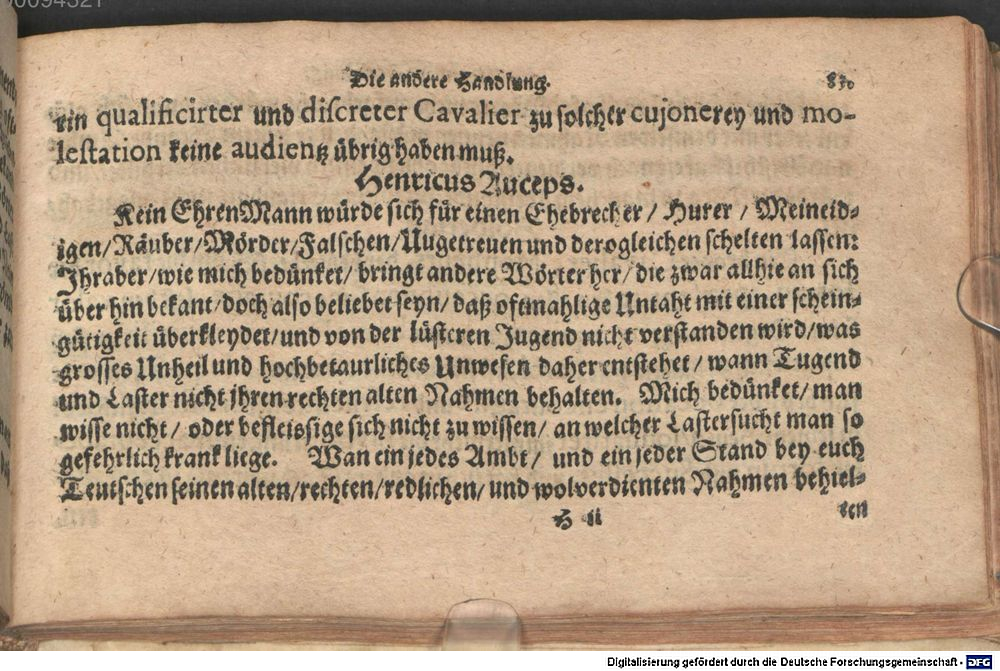 00094321
Die andere Handlung.
ein qualificirter und discreter Cavalier zu solcher cujonerey und mo-
lestation keine audientz übrig haben muß.
Henricus Auceps.
Kein EhrenMann würde sich für einen Ehebrecher / Hurer / Meineid-
igen / Räuber / Mörder / Falschen / Ungetreuen und derogleichen schelten lassen:
Jhr aber / wie mich bedünket / bringt andere Wörter her / die zwar allhie an sich
über hin bekant / doch also beliebet seyn / daß oftmahlige Untaht mit einer schein-
gütigkeit überkleydet / und von der lüsteren Jugend nicht verstanden wird / was
grosses Unheil und hochbetaurliches Unwesen daher entstehet / wann Tugend
und Laster nicht jhren rechten alten Nahmen behalten. Mich bedünket / man
wisse nicht / oder befleissige sich nicht zu wissen / an welcher Lastersucht man so
gefehrlich krank liege. Wan ein jedes Ambt / und ein jeder Stand bey euch
Teutschen seinen alten / rechten / redlichen / und wolverdienten Nahmen behiel-
H ii ten
Digitalisierung gefördert durch die Deutsche Forschungsgemeinschaft - DFG